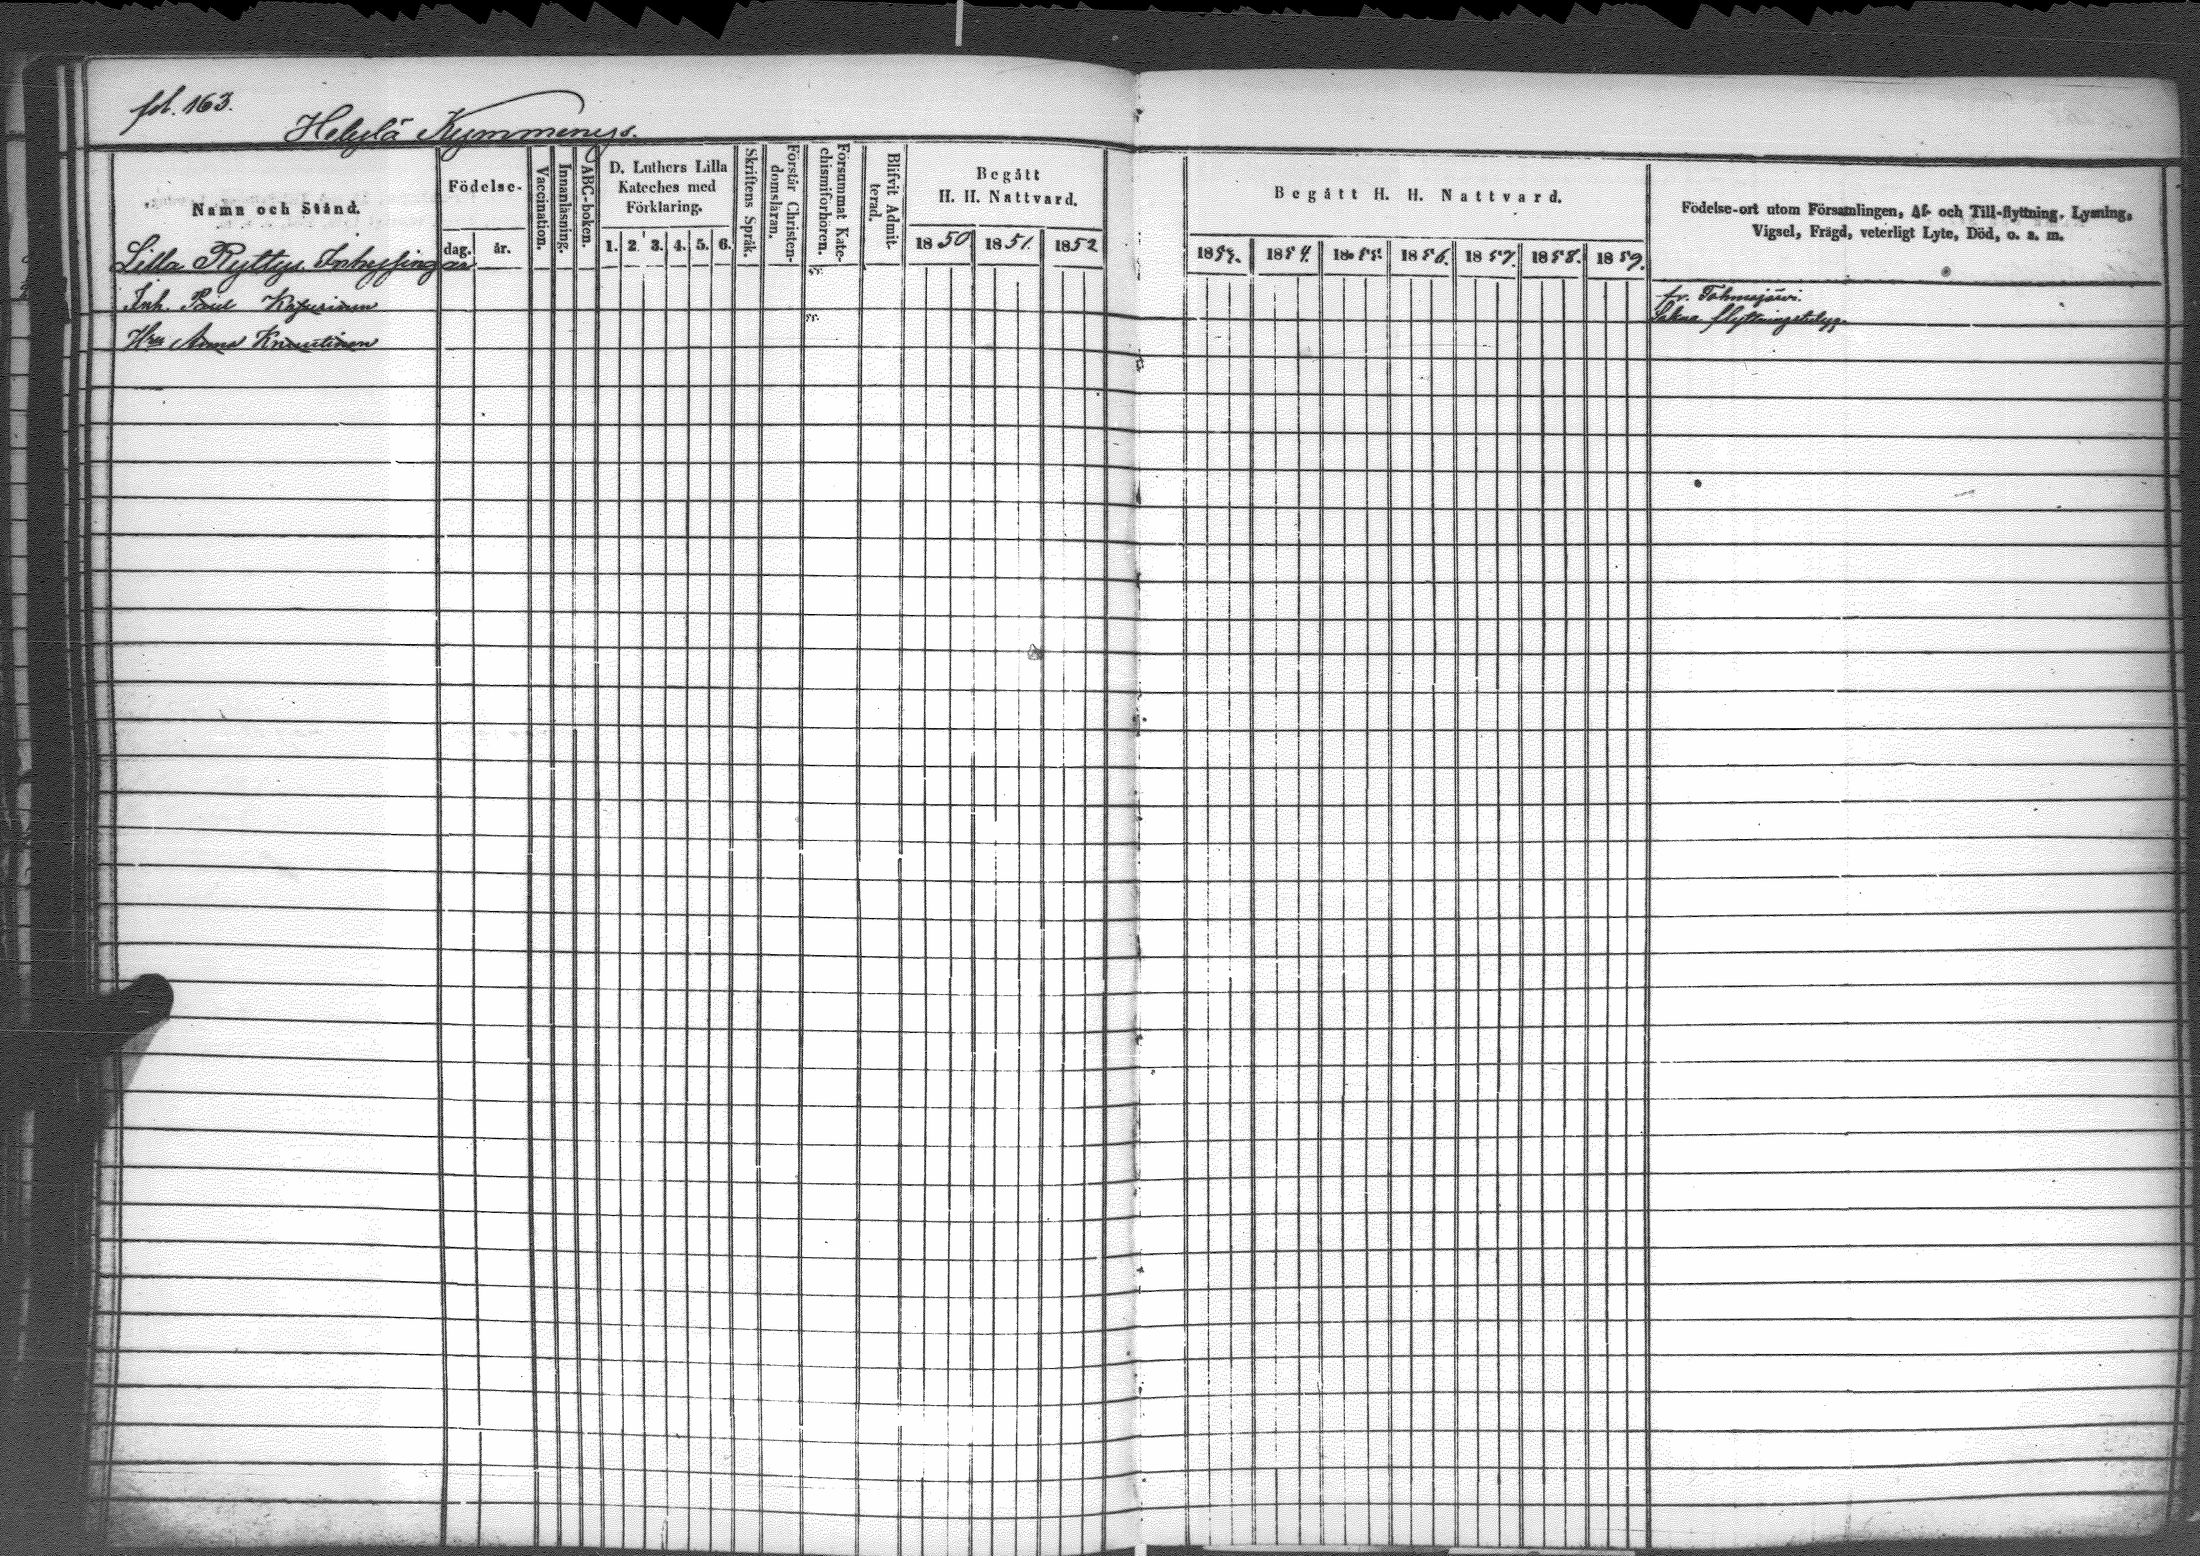 fol. 163.
Helylä Kymmenys.
Namn och Stånd.
Födelse-
dag. år.
Vaccination.
Innanläsning.
ABC-boken.
D. Luthers Lilla
Kateches med
Förklaring.
1. 2 3. 4. 5. 6.
Skriftens Språk.
Förstår Christen-
domsläran.
Försummat Kate-
chismiförhören.
Blifvit Admit-
terad.
Begått
H. H. Nattvard.
1850 1851. 1852
Begått H. H. Nattvard.
1853. 1854. 1855. 1856. 1857. 1858. 1859.
Födelse-ort utom Församlingen, Af- och Till-flyttning, Lysning,
Vigsel, Frägd, veterligt Lyte, Död, o. s. m.
Lilla Ryttys Inhysingar
Inh. Paul
Hru Anna
fr. Tohmajärvi.
Sakna flyttningsbetyg.